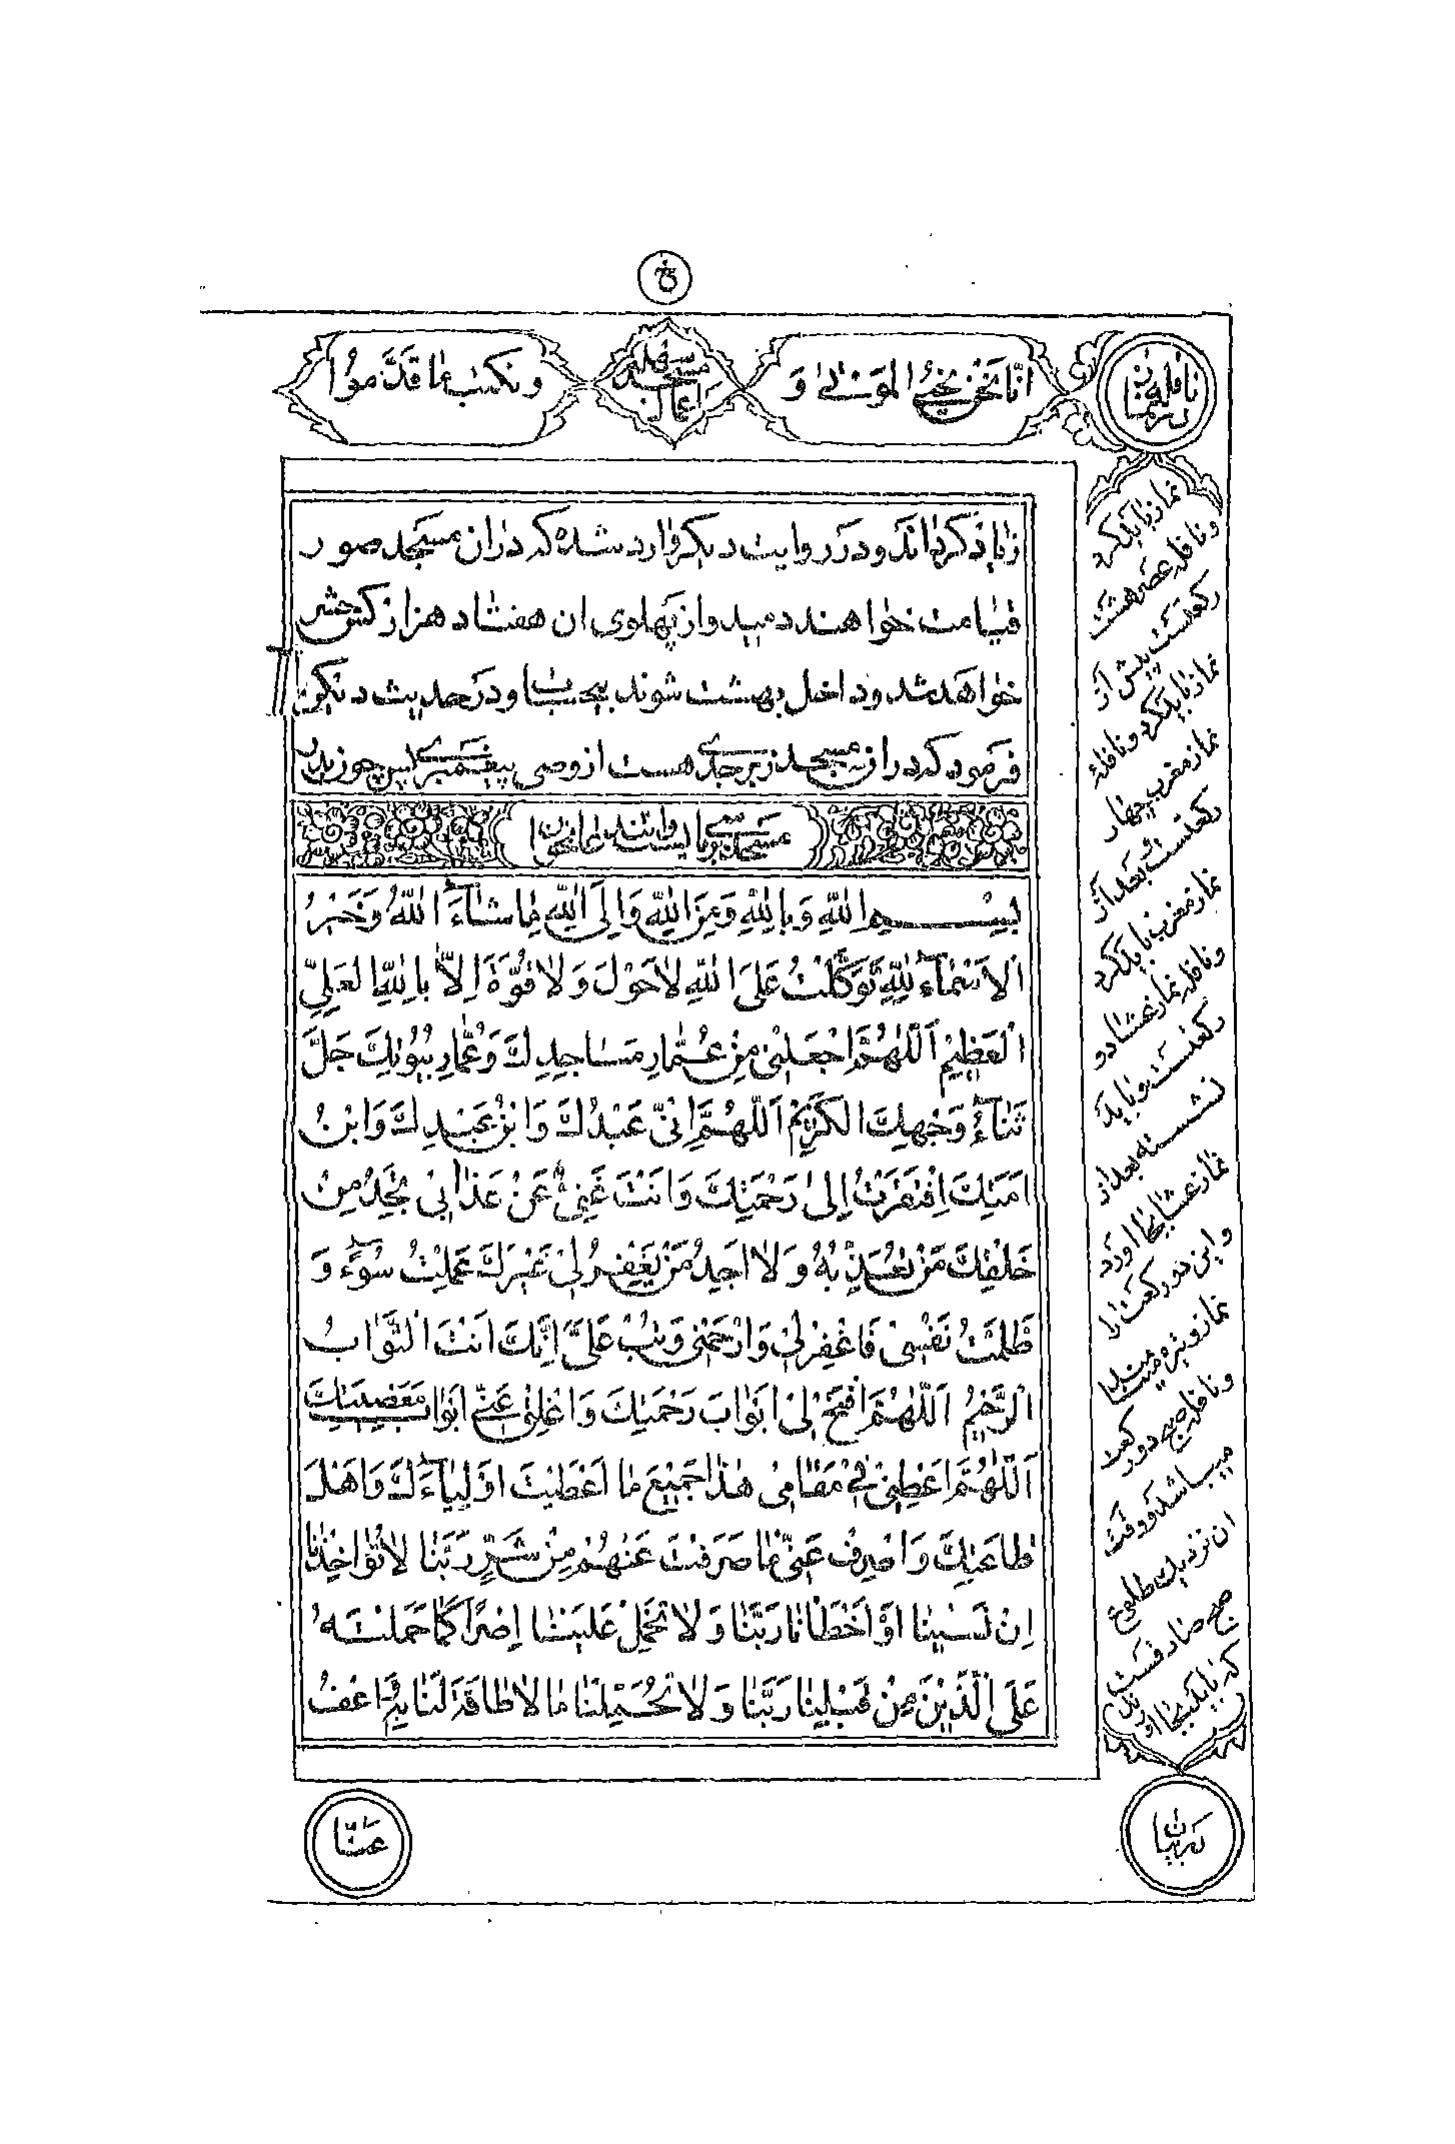 انّا نحن نحيي الموتى و
اعمال مسجد سهله
و نكتب ما قدّموا
او را یاد کرده‌اند و در روایت دیگر وارد شده که در ان مسجد صور
قیامت خواهند دمید و از پهلوی ان هفتاد هزار کس حشر
خواهد شد و داخل بهشت شوند بیحساب و در حدیث دیگر
فرمود که در ان مسجد زبرجدی هست از وصی پیغمبری پس چون
مسجد بایست و این دعا بخوان
بِسْمِ اللهِ وَبِاللهِ وَمِنَ اللهِ وَاِلَى اللهِ مٰا شٰاءَ اللهُ وَخَيْرُ
الْاَسْمٰاءِ لِلّٰهِ تَوَكَّلْتُ عَلَى اللهِ لٰا حَوْلَ وَلٰا قُوَّةَ اِلّٰا بِاللهِ الْعَلِيِّ
الْعَظِيْمِ اَللّٰهُمَّ اجْعَلْنِي مِنْ عُمّٰارِ مَسٰاجِدِكَ وَعُمّٰارِ بُيُوتِكَ جَلَّ
ثَنٰاءُ وَجْهِكَ الْكَرِيْمِ اَللّٰهُمَّ اِنِّي عَبْدُكَ وَابْنُ عَبْدِكَ وَابْنُ
اَمَتِكَ اِفْتَقَرْتُ اِلىٰ رَحْمَتِكَ وَاَنْتَ غَنِيٌّ عَنْ عَذٰابِي تَجِدُ مِنْ
خَلْقِكَ مَنْ تُعَذِّبُهُ وَلٰا اَجِدُ مَنْ يَغْفِرُ لِي غَيْرَكَ عَمِلْتُ سُوءً وَ
ظَلَمْتُ نَفْسِي فَاغْفِرْ لِي وَارْحَمْنِي وَتُبْ عَلَيَّ اِنَّكَ اَنْتَ التَّوّٰابُ
الرَّحِيْمُ اَللّٰهُمَّ افْتَحْ لِي اَبْوٰابَ رَحْمَتِكَ وَاَغْلِقْ عَنِّي اَبْوٰابَ مَعْصِيَتِكَ
اَللّٰهُمَّ اَعْطِنِي فِي مَقٰامِي هٰذٰا جَمِيعَ مٰا اَعْطَيْتَ اَوْلِيٰاءَكَ وَاَهْلَ
طٰاعَتِكَ وَاصْرِفْ عَنِّي مٰا صَرَفْتَ عَنْهُمْ مِنْ شَرٍّ رَبَّنٰا لٰا تُؤٰاخِذْنٰا
اِنْ نَسِيْنٰا اَوْ اَخْطَاْنٰا رَبَّنٰا وَلٰا تَحْمِلْ عَلَيْنٰا اِصْرًا كَمٰا حَمَلْتَهُ
عَلَى الَّذِيْنَ مِنْ قَبْلِنٰا رَبَّنٰا وَلٰا تُحَمِّلْنٰا مٰا لٰا طٰاقَةَ لَنٰا بِهِ وَاعْفُ
عَنّٰا
نماز باید کرد
و نافله عصر هشت
رکعتست پیش از
نماز باید کرد و نافلهٔ
نماز مغرب چهار
رکعتست بعد از
نماز مغرب باید کرد
و نافله نماز عشا دو
رکعتست و باید
نشسته بعد از
نماز عشا بجا اورد
و این دو رکعت را
نماز وتیره مینامند
و نافله صبح دو رکعت
میباشد و وقت
ان نزدیك طلوع
صبح صادقست
که باید بجا اورد
دربیان